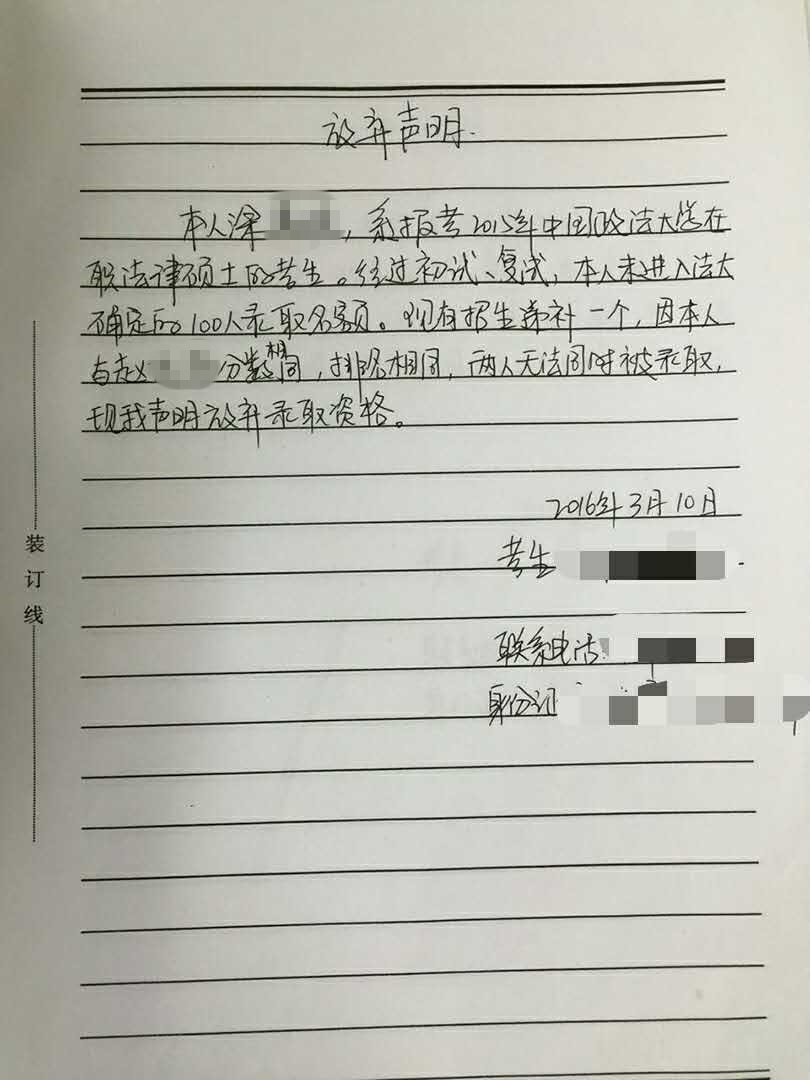 放弃声明.
本人涂 ，系报考2015年中国政法大学在
职法律硕士的考生。经过初试、复试，本人未进入法大
确定的100人录取名额。现有招生第补一个，因本人
与赵 分数相同，排名相同，两人无法同时被录取，
现我声明放弃录取资格。
2016年3月10日
考生
联系电话:
身份证
装订线